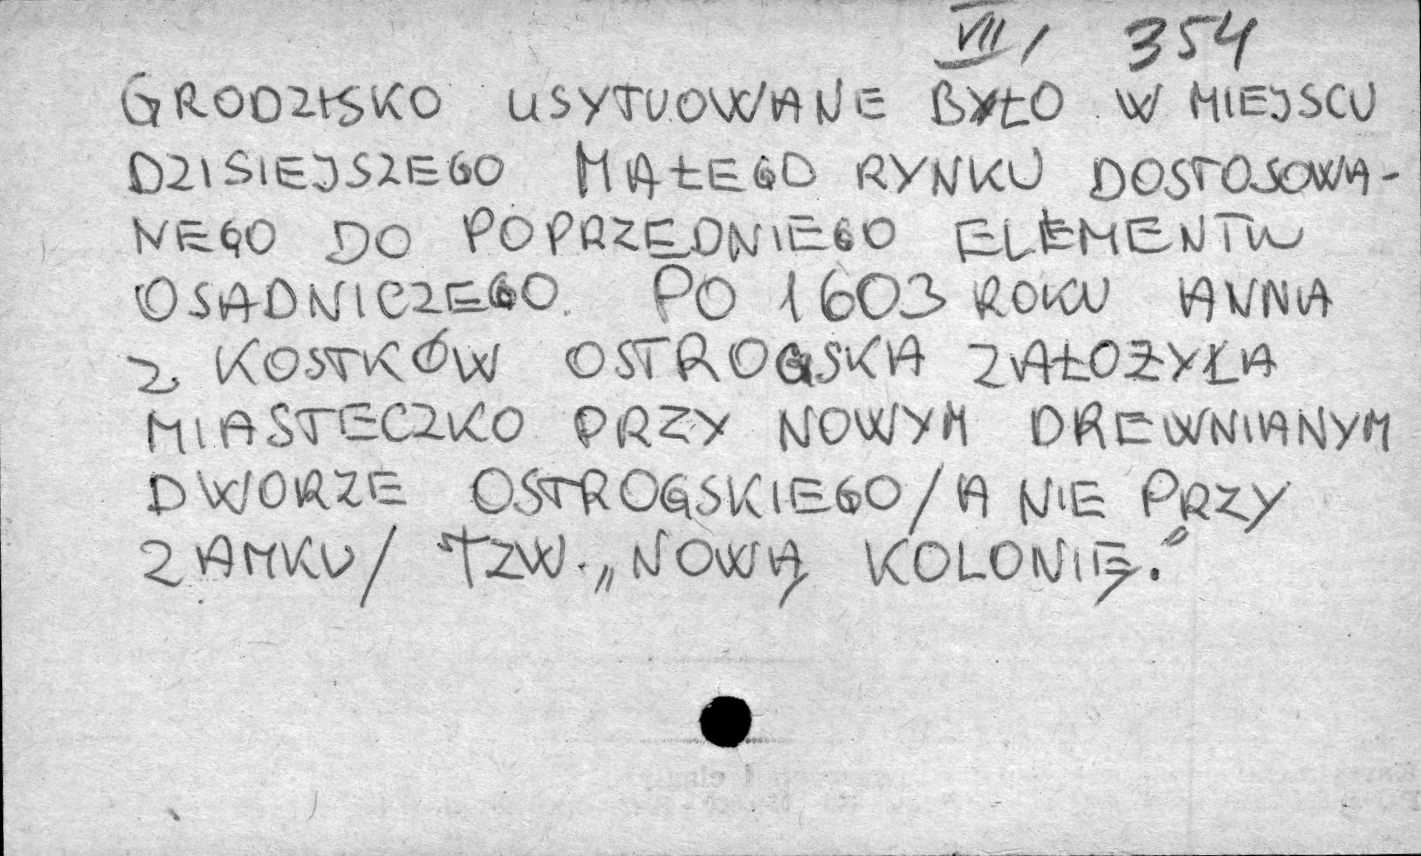 VII, 354
GRODZISKO USYTUOWANE BYŁO W MIEJSCU
DZISIEJSZEGO MAŁEGO RYNKU DOSTOSOWA-
NEGO DO POPRZEDNIEGO ELEMENTU
OSADNICZEGO. PO 1603 ROKU ANNA
Z KOSTKÓW OSTROGSKA ZAŁOŻYŁA
MIASTECZKO PRZY NOWYM DREWNIANYM
DWORZE OSTROGSKIEGO /A NIE PRZY
ZAMKU/ TZW. „NOWĄ KOLONIĘ."